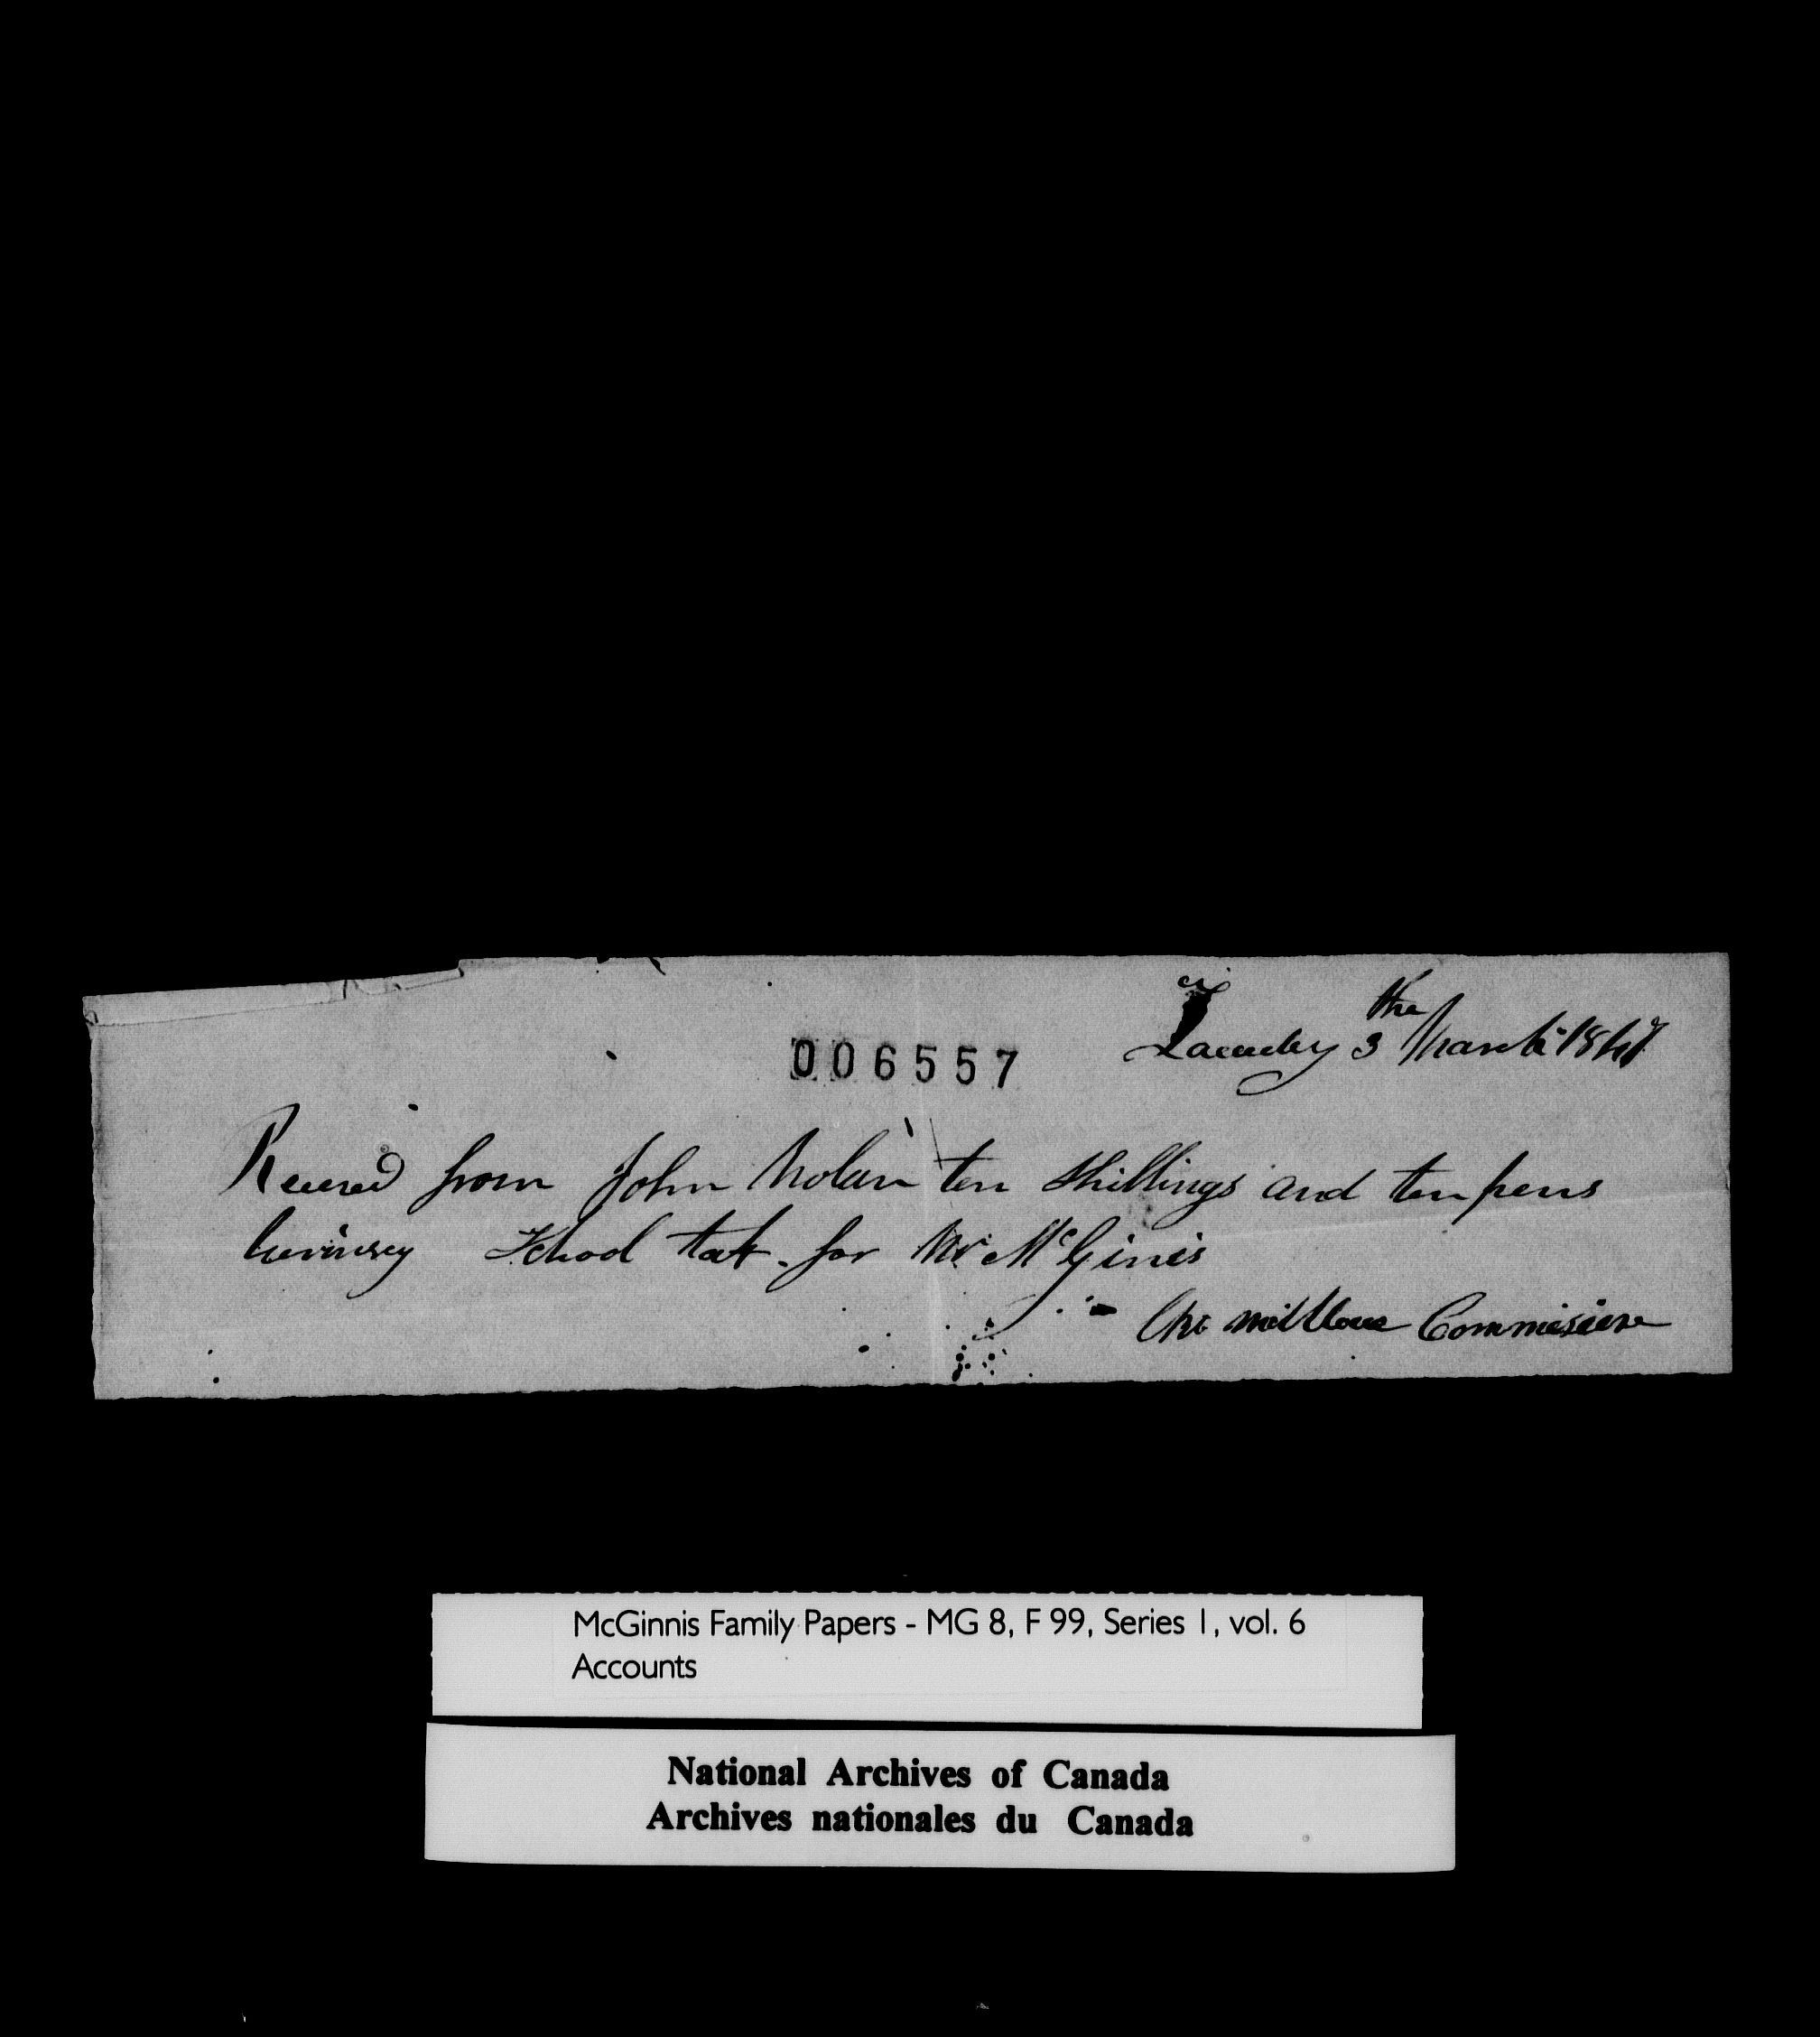 006557
3 the March 184
Received from John Nolan ten Shillings and ten pens
School tax for Mr McGinis
Commisiere
McGinnis Family Papers - MG 8, F 99, Series 1, vol. 6
Accounts
National Archives of Canada
Archives nationales du Canada